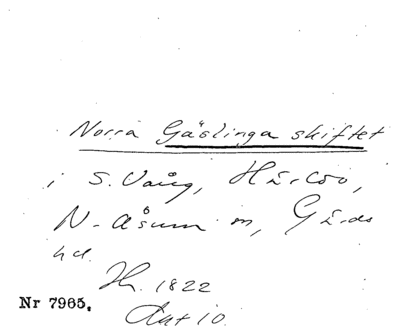 Norra Gäslinga skiftet
i S. Vång, Härlöv,
N. Åsum sn, Gärds
hd.
H. 1822
Akt 10
Nr 7965.